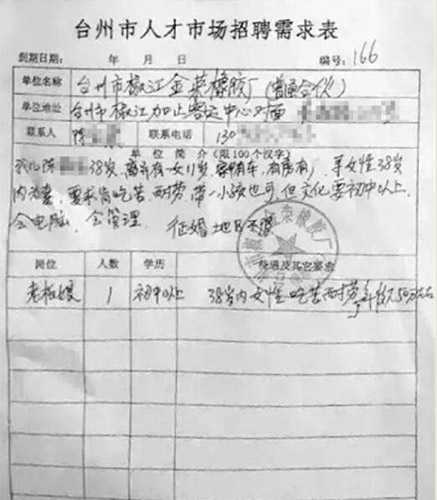 台州市人才市场招聘需求表
到期日期: 年 月 日 编号: 166
单位名称 台州市椒江金荣橡胶厂(普通合伙)
单位地址 台州市椒江加止客运中心对面
联系人 陈 联系电话 130
单 位 简 介 (限100个汉字)
我儿陈 38岁,离异有一女11岁,家中有车,有房有厂,寻女性38岁
内为妻,要求肯吃苦、耐劳,带一小孩也可,但文化要初中以上,
会电脑,会管理. 征婚地区不限
岗位 人数 学历 待遇及其它要求
老板娘 1 初中以上 38岁内女性吃苦耐劳年收入50万左右